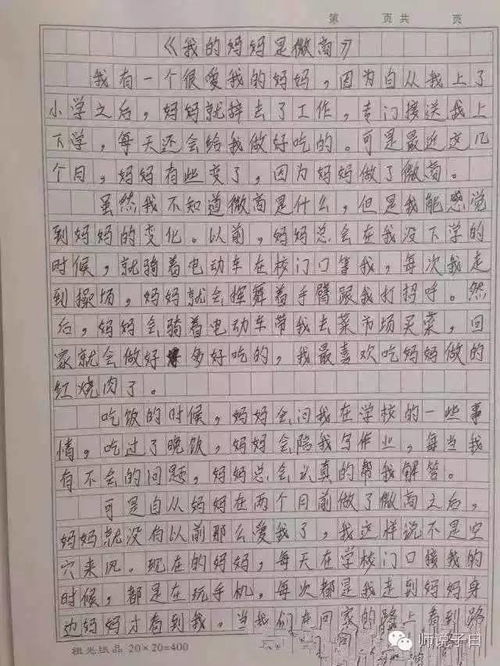 第 页 共 页
《我的妈妈是微商》
我有一个很爱我的妈妈，因为自从我上了
小学之后，妈妈就辞去了工作，专门接送我上
下学，每天还会给我做好吃的。可是最近这几
个月，妈妈有些变了，因为妈妈做了微商。
虽然我不知道微商是什么，但是我能感觉
到妈妈的变化。以前，妈妈总会在我没下学的
时候，就骑着电动车在校门口等我，每次我走
到操场，妈妈就会挥舞着手臂跟我打招呼。然
后，妈妈会骑着电动车带我去菜市场买菜，回
家就会做好多好吃的，我最喜欢吃妈妈做的
红烧肉了。
吃饭的时候，妈妈会问我在学校的一些事
情，吃过了晚饭，妈妈会陪我写作业，每当我
有不会的问题，妈妈总会认真的帮我解答。
可是自从妈妈在两个月前做了微商之后，
妈妈就没有以前那么爱我了，我这样说不是空
穴来风。现在的妈妈，每天在学校门口接我的
时候，都是在玩手机，每次都是我走到妈妈身
边妈妈才看到我。当我们在回家的路上看到路
20×20=400
师说子曰